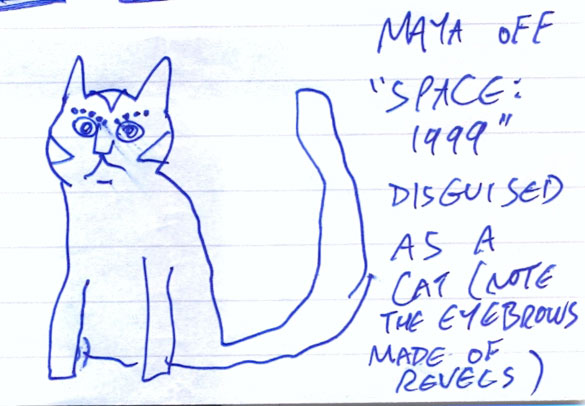 MAYA OFF
"SPACE:
1999"
DISGUISED
AS A
CAT (NOTE
THE EYEBROWS
MADE OF
REVELS)